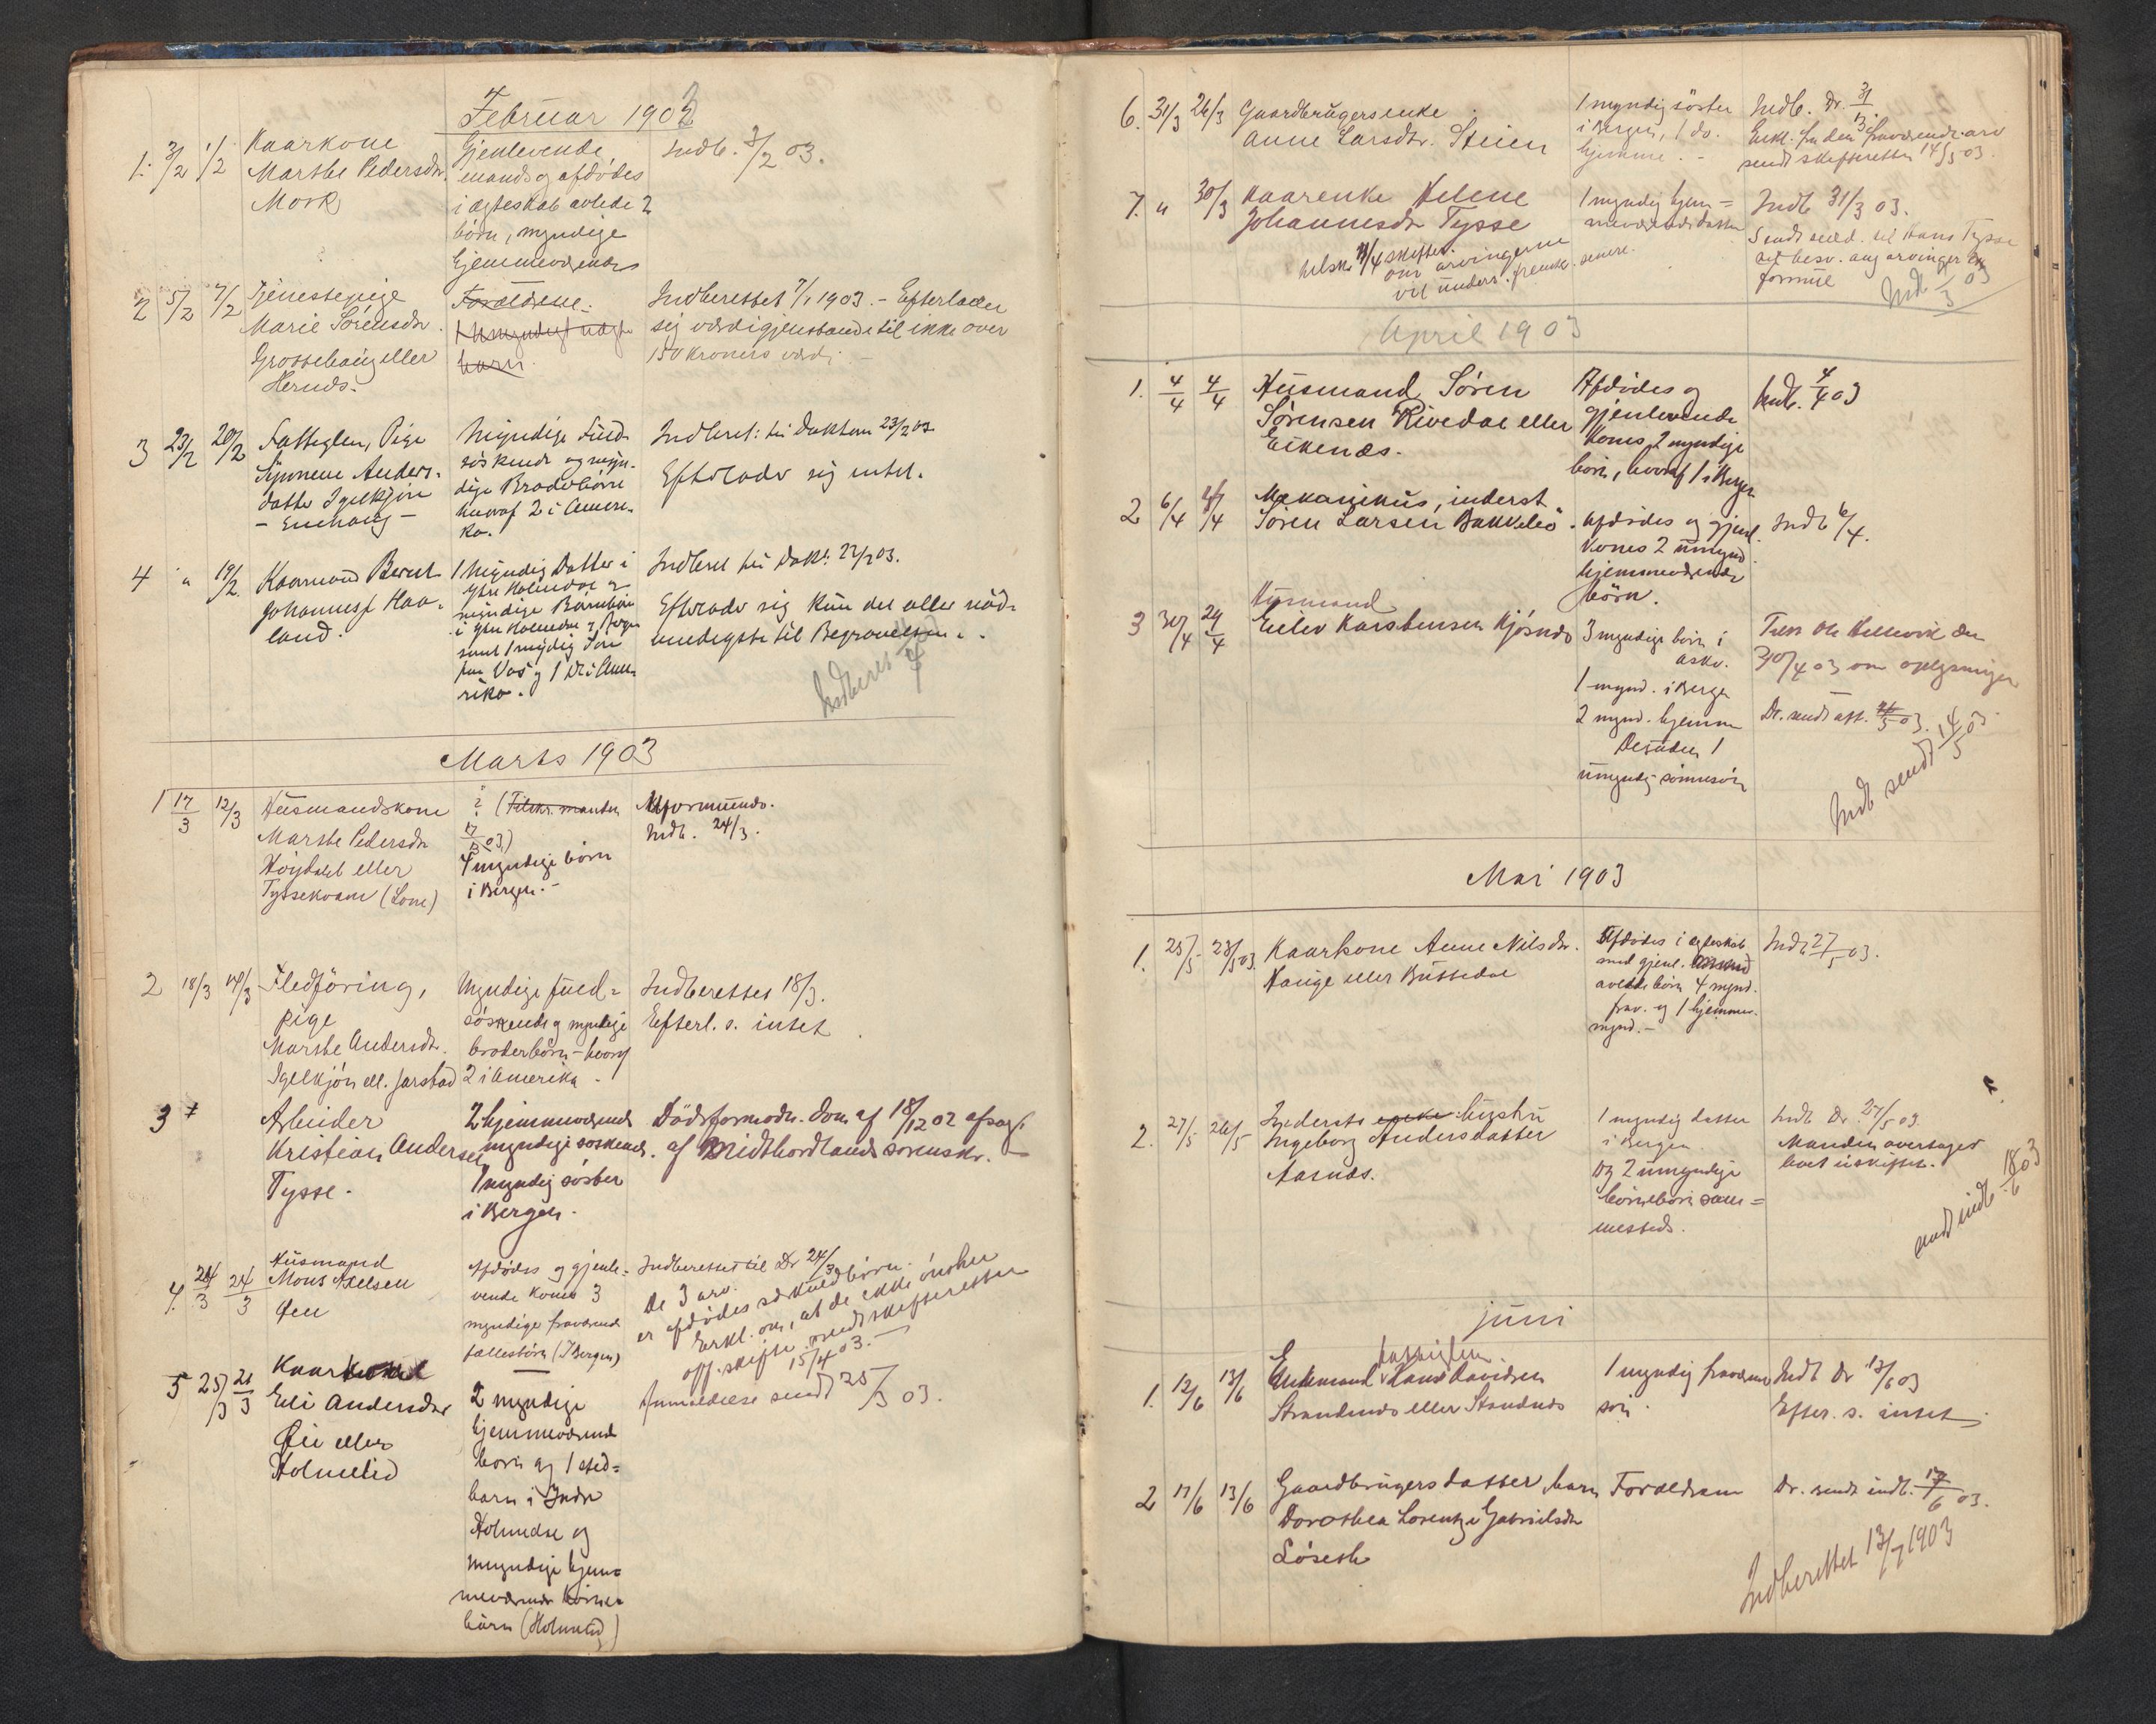 Februar 1903
1. 3/2 1/2 Kaarkone
Marthe Pedersdtr.
Mork
Gjenlevende
mands og afdödes
i ægteskab avlede 2
börn, myndige
hjemmeværende
Indb. 3/2 03.
2 5/2 7/2 Tjenestepige
Marie Sörensdtr.
eller
Hernæs.
Forældrene.
barn.
Indberettet 7/2 1903. – Efterlader
sig værdigjenstande til ikke over
150 kroners værdi. –
3 23/2 20/2 Fattiglem, Pige
Synneve Anders-
datter Igelkjön
Myndige Fuld-
söskende og myn-
dige Broderbörn
hvoraf 2 i Ameri-
ka.
Indberet: til Doktoren 23/2 03
Efterlader sig intet.
4 " 19/2 Kaarmand Bernt
Johannes Haa-
land.
1 Myndig Datter i
Ytre Holmedal og
myndige Barnebörn
i Ytre Holmedal og Bergen
samt 1 myndig Sön
paa Vos og 1 Do i Ame-
rika.
Indberet til Dokt: 23/2 03.
Efterlader sig kun det aller nöd-
vendigste til Begravelsen.
Indberet 4/3
Marts 1903
1 17/3 12/3 Husmandskone
Marthe Pedersdtr
Höydalet eller
Tyssekvam (Lone)
? (Tilskr. manden
17/3 03)
4 myndige börn
i Bergen. –
Uformuende.
Indb. 24/3.
2 18/3 14/3 Fledföring,
pige
Marthe Andersdtr.
Igelkjön ell. Jarstad
Myndige fuld-
söskende og myndige
broderbörn – hvoraf
2 i Amerika.
Indberettet 18/3.
Efterl. s. intet
3 Arbeider
Kristian Andersen
Tysse.
2 hjemmeværende
myndige söskende.
1 myndig söster
i Bergen.
Dödsformodn. dom af 18/12 02 afsagt
af Midthordlands sorenskr.
4. 24/3 24/3 Husmand
Mons Axelsen
Öen
Afdödes og gjenle-
vende kones 3
myndige fraværende
fællesbörn (I Bergen)
Indberettet til Dr 24/3
De 3 arv.
er afdödes særkuldbörn.
Erkl. om, at de ikke önsker
off. skifte sendt skifteretten
15/4 03. –
5 25/3 21/3 Kaarkone
Eli Andersdtr
Öie eller
Holmelid
2 myndige
hjemmeværende
börn og 1 sted-
barn i Indre
Holmedal og
myndige hjem-
meværende börne-
börn (Holmelid)
Anmeldelse sendt 25/3 03.
6. 31/3 26/3 Gaardbrugerenke
Anne Larsdtr. Steien
1 myndig söster
i Bergen, 1 do.
hjemme. –
Indb. Dr. 31/3.
Erkl. fra den fraværende arv
sendt skifteretten 14/5 03.
7. " 30/3 Kaarenke Helene
Johannesdtr Tysse
1 myndig hjem-
meværende datter
Indb 31/3 03.
om arvingerne
vil senere.
Sendt til Hans Tysse
besv. ang arvinger og
formue
Indb 03
April 1903
1. 4/4 4/4 Husmand Sören
Sörensen Rivedal eller
Eikenæs.
Afdödes og
gjenlevende
kones 2 myndige
börn, hvoraf 1 i Bergen
Indb. 4/4 03
2 6/4 4/4 Mekanikus, inderst
Sören Larsen Bakkelid.
Afdödes og gjenl.
kones 2 umynd.
hjemmeværende
börn.
Indb 6/4.
3 30/4 29/4 Husmand
Eilev Karstensen Kjösnæs
3 myndige börn i
Askv.
1 mynd. i Bergen
2 mynd. hjemme
Desuden 1
umyndig sönnesön
Tilskr Ole Hellevik den
30/4 03 om oplysninger
Dr. sendt att. 03.
Indb sendt 14/5 03
Mai 1903
1. 25/5 23/5 03. Kaarkone Anne Nilsdtr.
Hauge eller Bustedal
Afdödes i ægteskab
med gjenl. mand
avlede börn 4 mynd.
frav. og 1 hjemmev.
mynd. –
Indb 27/5 03.
2. 27/5 26/5 Inderste enke hustru
Ingeborg Andersdatter
Aarnæs.
1 myndig datter
i Bergen.
og 2 umyndige
börnebörn sam-
mesteds.
Indb Dr. 27/5 03
Manden overtager
boet uskiftet.
sendt indb. 18/6 03
Juni
1. 12/6 13/6 Enkemand fattiglem. Hans Davidsen
Strandenæs eller Standnæs
1 myndig fraværende
sön.
Indb Dr 13/6 03
Efter. s. intet.
2 17/6 13/6 Gaardbrugersdatter, barn
Dorothea Lorentze Gabrielsdtr
Löseth
Forældrene
Dr. sendt indb. 17/6 03.
Indberettet 13/7 1903